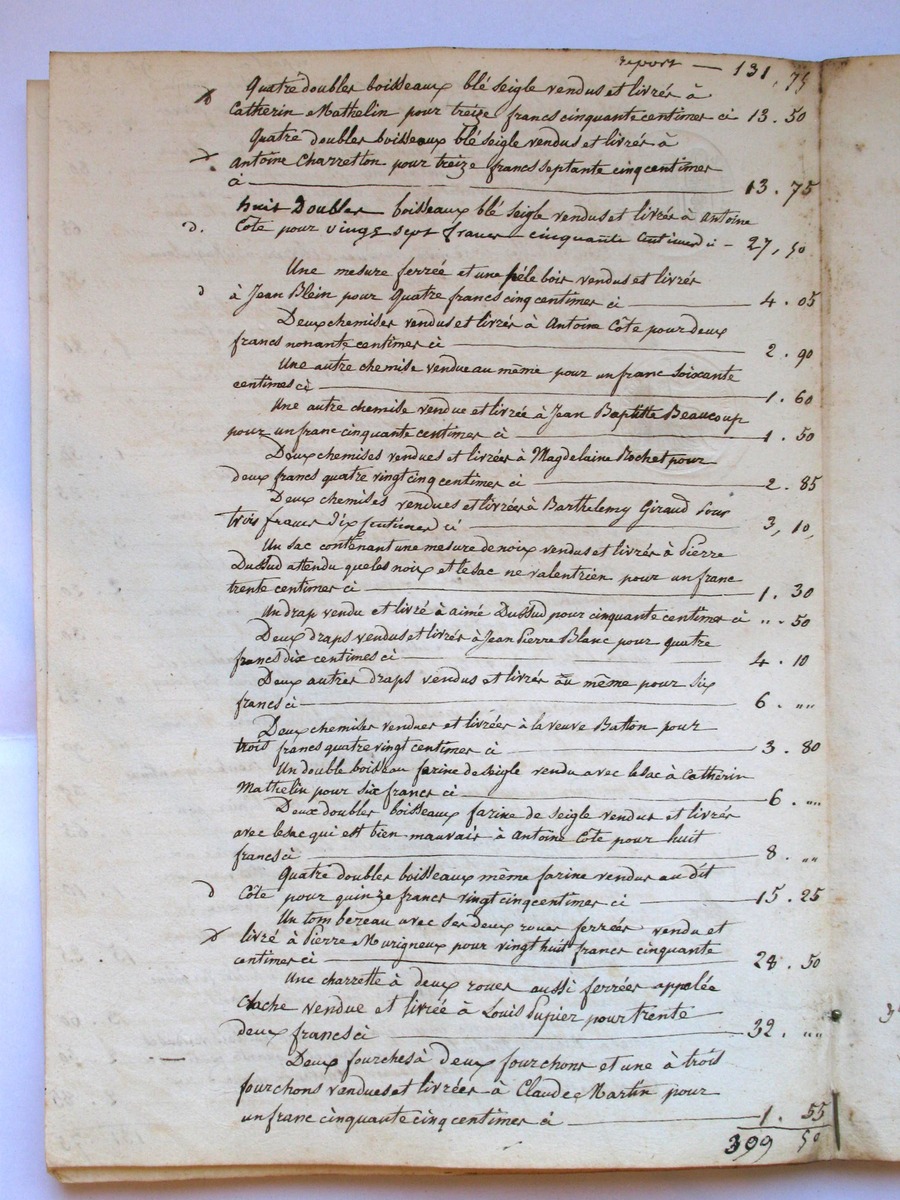 report — 131 . 75
Quatre doubles boisseaux blé seigle vendus et livrés à
Catherin Mathelin pour treize francs cinquante centimes ci 13 . 50
Quatre doubles boisseaux blé seigle vendus et livrés à
Antoine Charretton pour treize francs septante cinq centimes
ci — 13 . 75
huit Doubles boisseaux blé seigle vendus et livrés à antoine
D. Cote pour vingt sept francs cinquante Centimes ci — 27, 50
Une mesure ferrée et une péle bois vendus et livrés
D à Jean Blein pour Quatre francs cinq centimes ci — 4 . 05
Deux chemises vendus et livrés à Antoine Côte pour deux
francs nonante centimes ci — 2 . 90
Une autre chemise vendue au même pour un franc soixante
centimes ci — 1 . 60
Une autre chemise vendue et livrée à Jean Baptiste Beaucoup
pour un franc cinquante centimes ci — 1 . 50
Deux chemises vendues et livrées à Magdelaine Rochet pour
deux francs quatre vingt cinq centimes ci — 2 . 85
Deux chemises vendues et livrées à Barthelemy Giraud pour
trois francs Dix Centimes ci — 3, 10,
Un sac contenant une mesure de noix vendus et livrés à Pierre
DuSsud attendu que les noix et le sac ne valent rien pour un franc
trente centimes ci — 1 . 30
Un drap vendu et livré à aimé DuSsud pour cinquante centimes ci „ . 50
Deux draps vendus et livrés à Jean Pierre Blanc pour quatre
francs dix centimes ci — 4 . 10
Deux autres draps vendus et livrés au même pour six
francs ci — 6 . „„
Deux chemises vendues et livrées à la veuve Batton pour
trois francs quatre vingt centimes ci — 3 . 80
Un double boisseau farine de seigle vendu avec le sac à Catherin
Mathelin pour six francs ci — 6 . „„
Deux doubles boisseaux farine de seigle vendus et livrés
avec le sac qui est bien mauvais à Antoine Côte pour huit
francs ci — 8 . „„
Quatre doubles boisseaux même farine vendus au dit
D Côte pour quinze francs vingt cinq centimes ci — 15 . 25
Un tombereau avec ses deux roues ferrées vendu et
livré à Pierre Murigneux pour vingt huit francs cinquante
centimes ci — 28 . 50
Une charrette à deux roues aussi ferrées appelée
vendue et livrée à Louis Pupier pour trente
deux francs ci — 32 . „„
Deux fourches à deux fourchons et une à trois
fourchons vendues et livrées à Claude Martin pour
un franc cinquante cinq centimes ci — 1 . 55
399 50